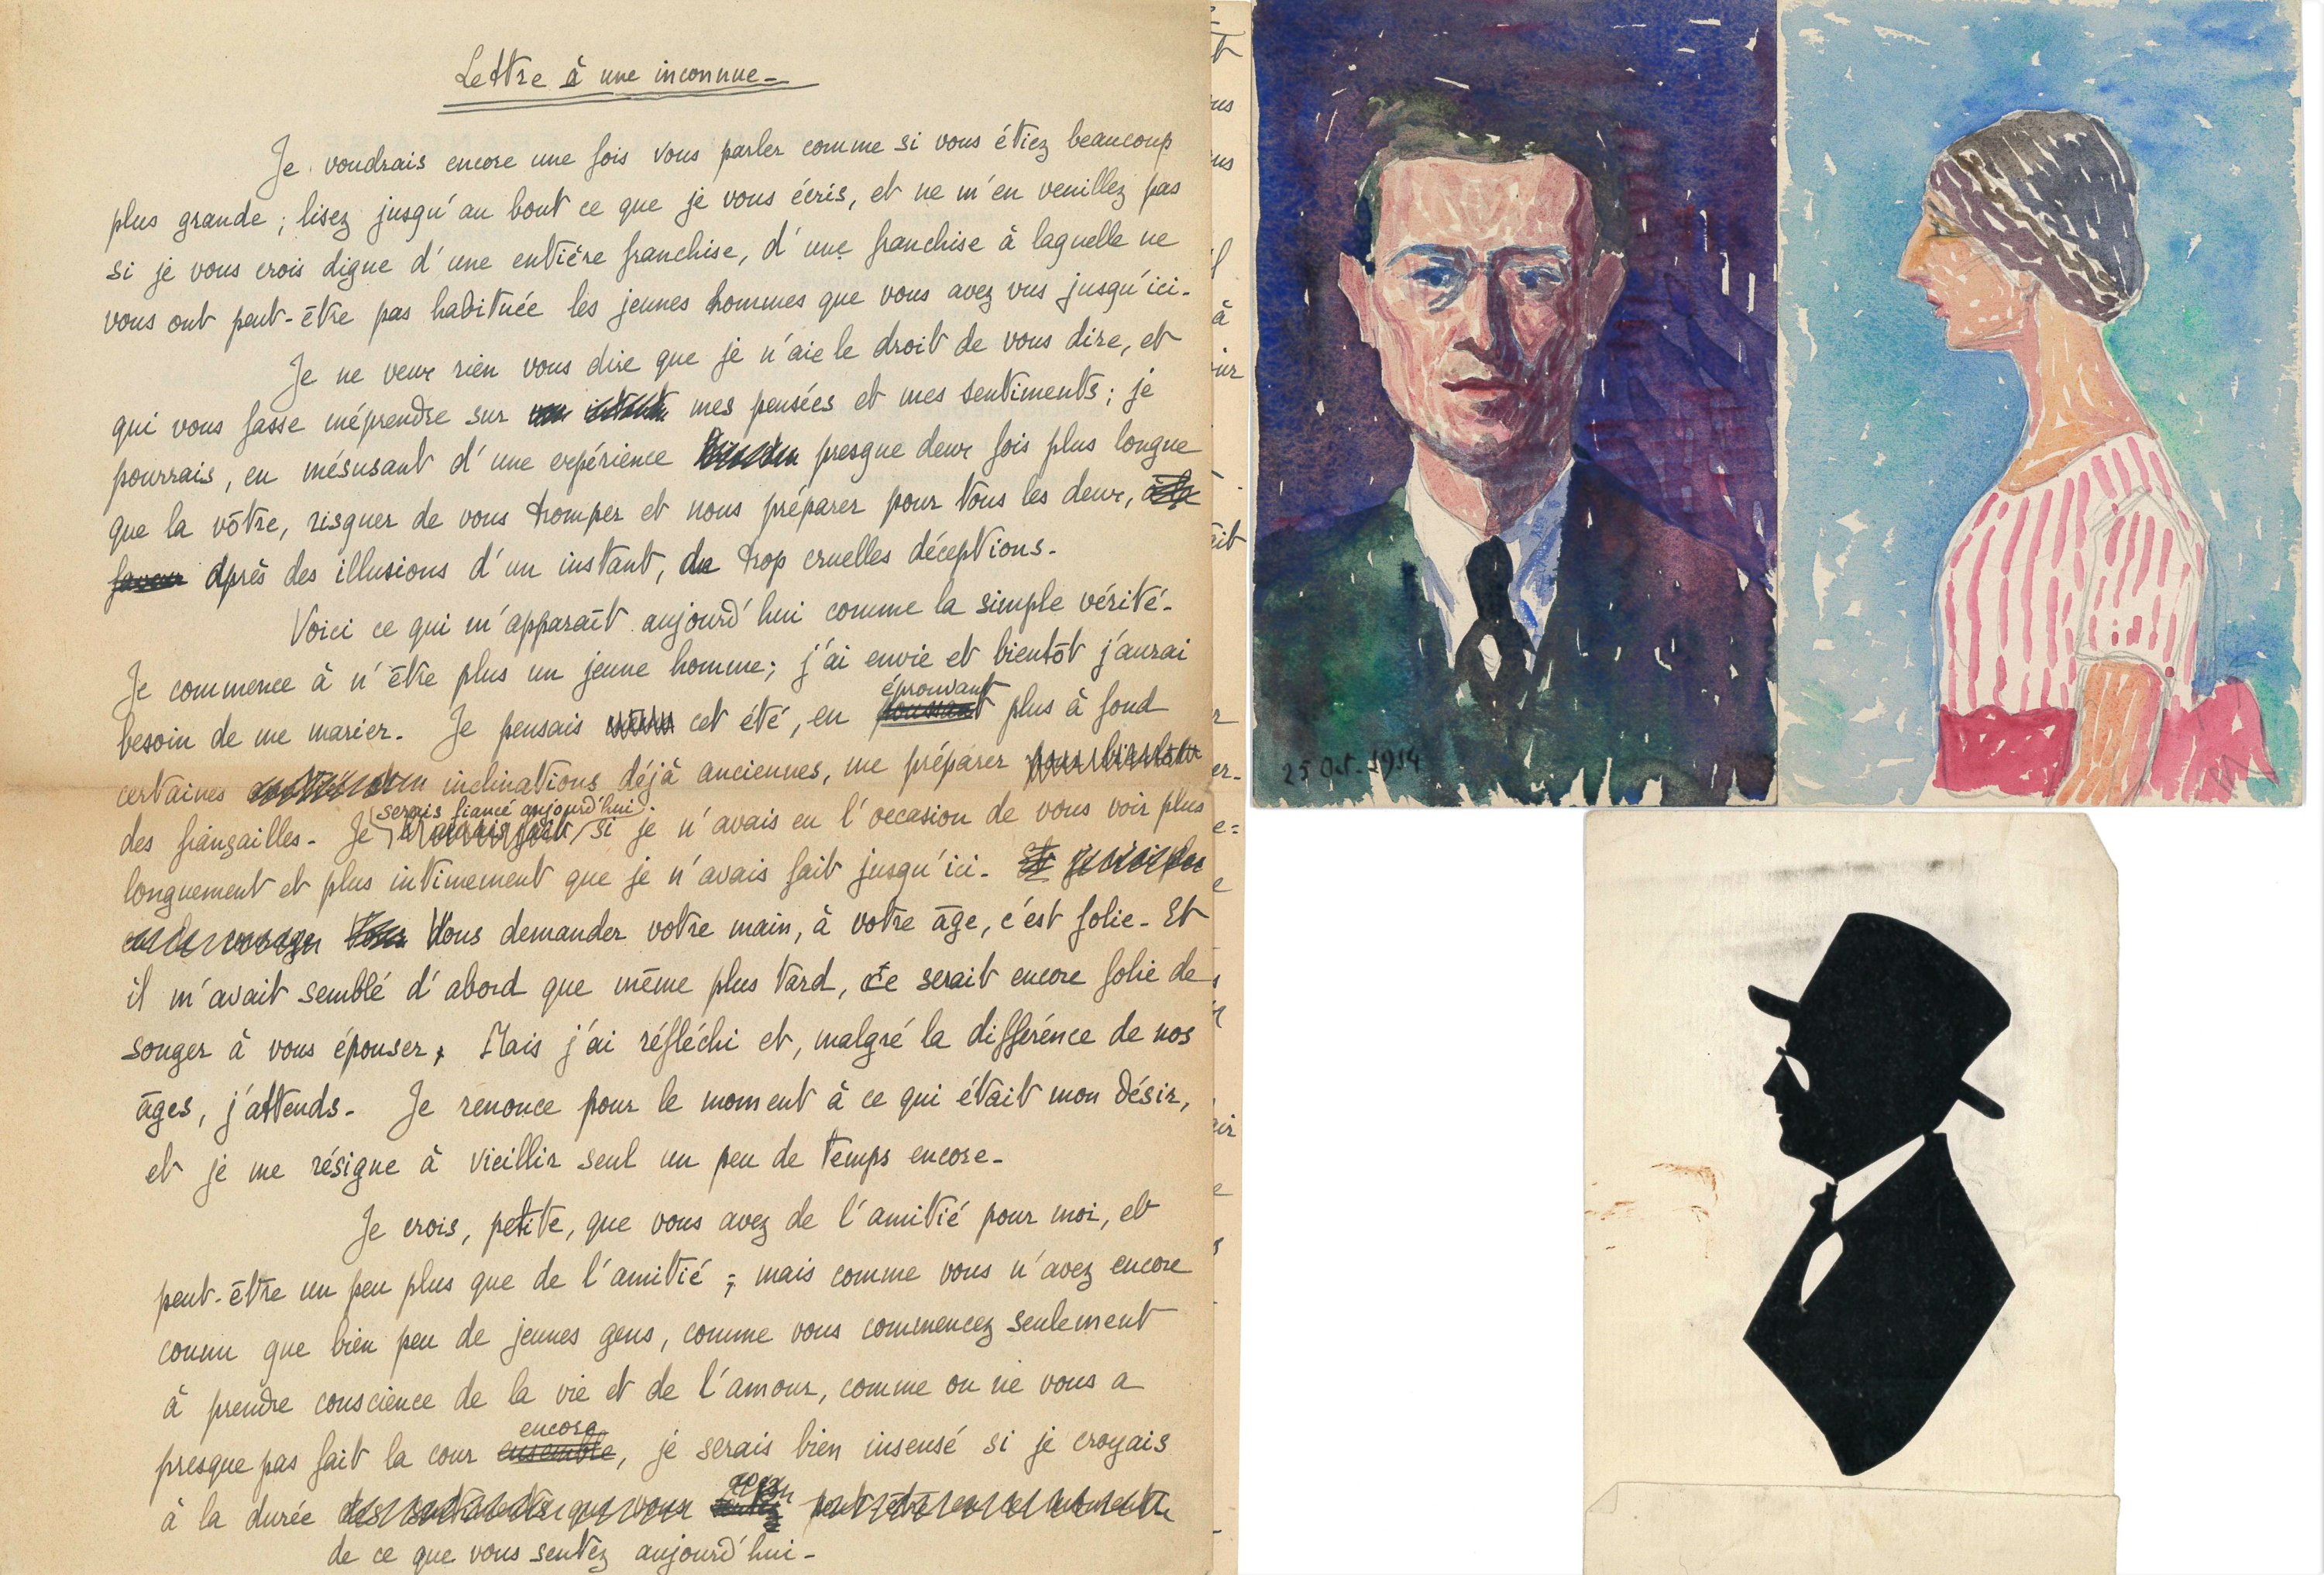 Lettre à une inconnue-
Je voudrais encore une fois vous parler comme si vous étiez beaucoup
plus grande ; lisez jusqu'au bout ce que je vous écris, et ne m'en veuillez pas
si je vous crois digne d'une entière franchise, d'une franchise à laquelle ne
vous ont peut-être pas habituée les jeunes hommes que vous avez vus jusqu'ici-
Je ne veux rien vous dire que je n'aie le droit de vous dire, et
qui vous fasse méprendre sur mes pensées et mes sentiments ; je
pourrais, en mésusant d'une expérience presque deux fois plus longue
que la vôtre, risquer de vous tromper et nous préparer pour tous les deux,
après des illusions d'un instant, de trop cruelles déceptions-
Voici ce qui m'apparaît aujourd'hui comme la simple vérité-
Je commence à n'être plus un jeune homme ; j'ai envie et bientôt j'aurai
besoin de me marier- Je pensais cet été, en poussant éprouvant plus à fond
certaines inclinations déjà anciennes, me préparer
des fiançailles- Je serais fiancé aujourd'hui si je n'avais eu l'occasion de vous voir plus
longuement et plus intimement que je n'avais fait jusqu'ici-
Vous demander votre main, à votre âge, c'est folie- Et
il m'avait semblé d'abord que même plus tard, ce serait encore folie de
songer à vous épouser, Mais j'ai réfléchi et, malgré la différence de nos
âges, j'attends- Je renonce pour le moment à ce qui était mon désir,
et je me résigne à vieillir seul un peu de temps encore-
Je crois, petite, que vous avez de l'amitié pour moi, et
peut-être un peu plus que de l'amitié ; mais comme vous n'avez encore
connu que bien peu de jeunes gens, comme vous commencez seulement
à prendre conscience de la vie et de l'amour, comme on ne vous a
presque pas fait la cour ensemble encore, je serais bien insensé si je croyais
à la durée
de ce que vous sentez aujourd'hui-
25 Oct. 1914